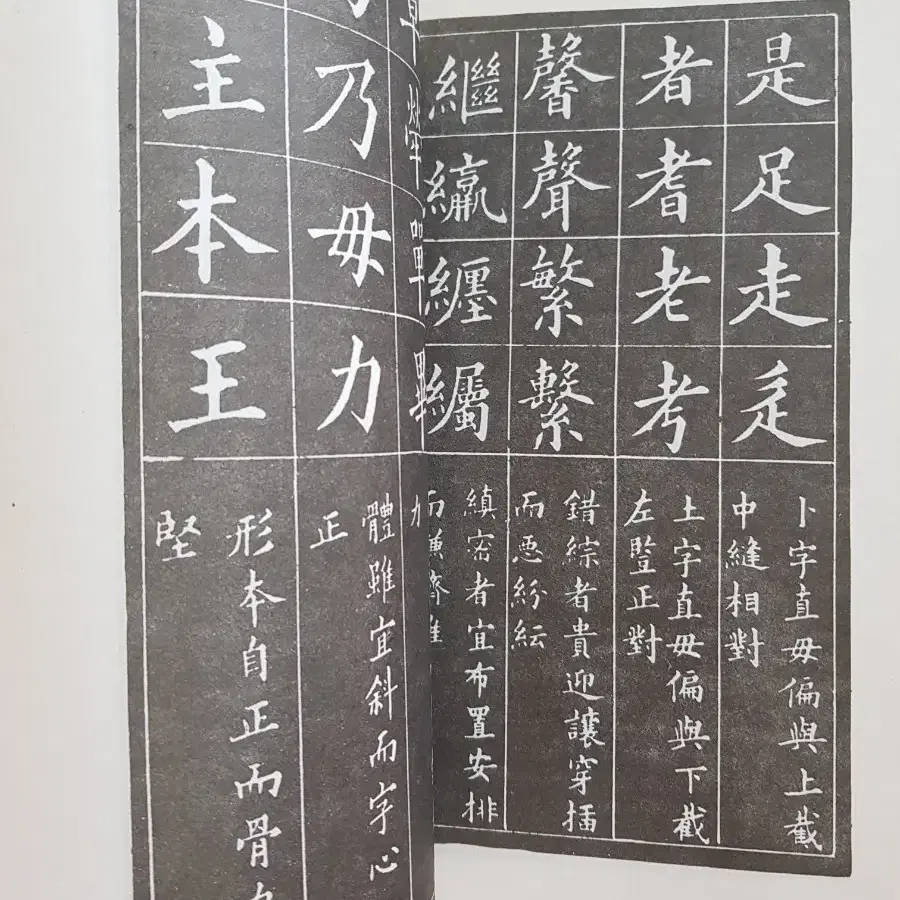 是足走辵
卜字直毋偏與上截
中縫相對
者耆老考
土字直毋偏與下截
左竪正對
馨聲繁繫
錯綜者貴迎讓穿插
而惡紛紜
繼纏
縝密者宜布置安排
而
乃毋力
體雖宜斜而字心
正
主本王
形本自正而骨
堅